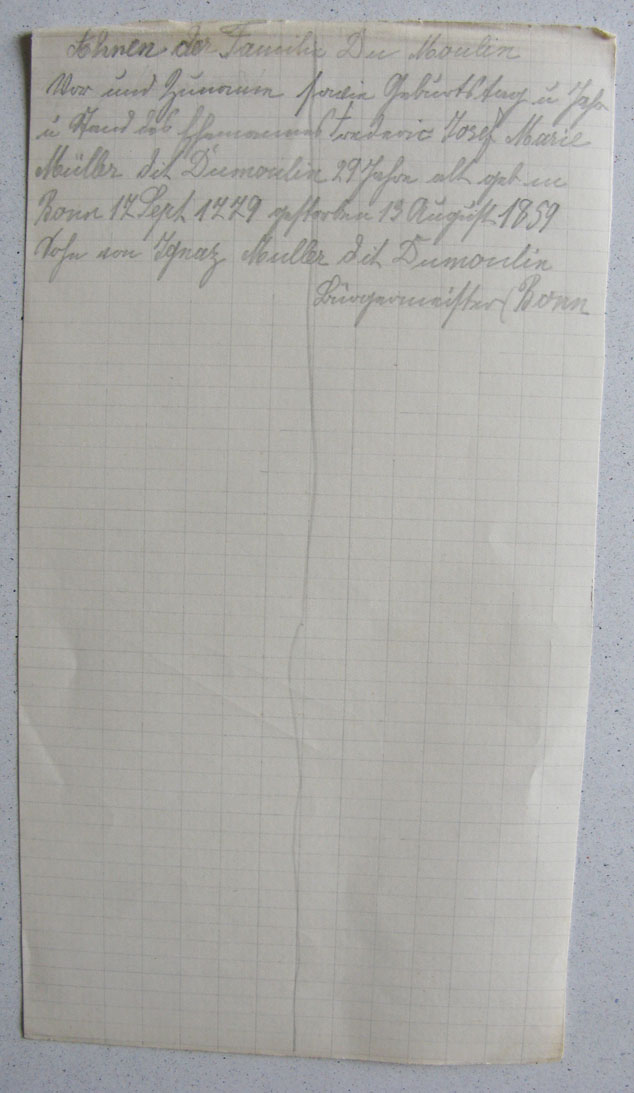 Ahnen der Familie Du Moulin
Vor und Zuname sowie Geburtstag u Jahr
u Stand des Ehemannes Frederic Josef Marie
Müller dit Dumoulin 29 Jahre alt geb in
Bonn 17 Sept 1779 gestorben 13 August 1859
Sohn von Ignaz Muller dit Dumoulin
Bürgermeister Bonn